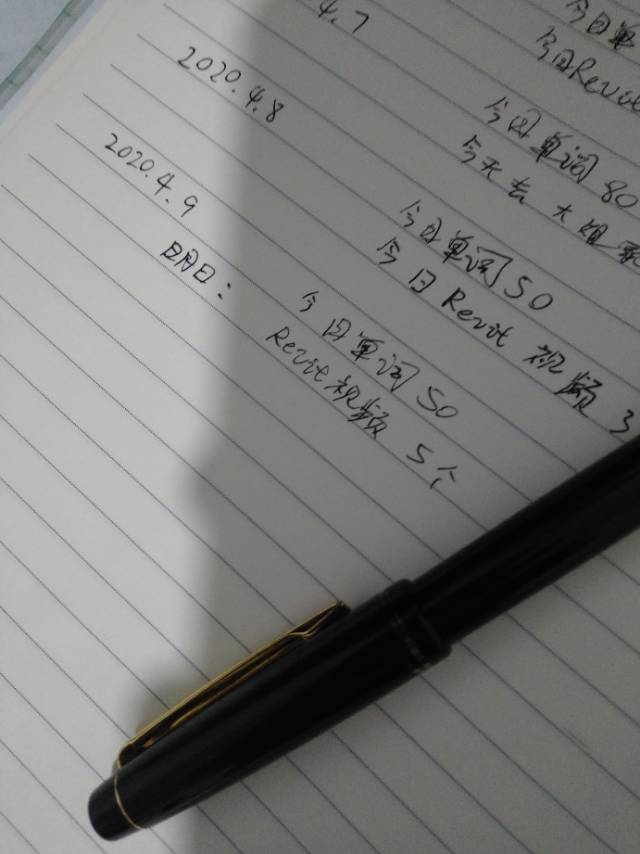 今日单
今日Revit
4.7 今日单词 80
今天去大姐家
2020.4.8 今日单词 50
今日 Revit 视频 3
2020.4.9 今日单词 50
明日: Revit视频 5个